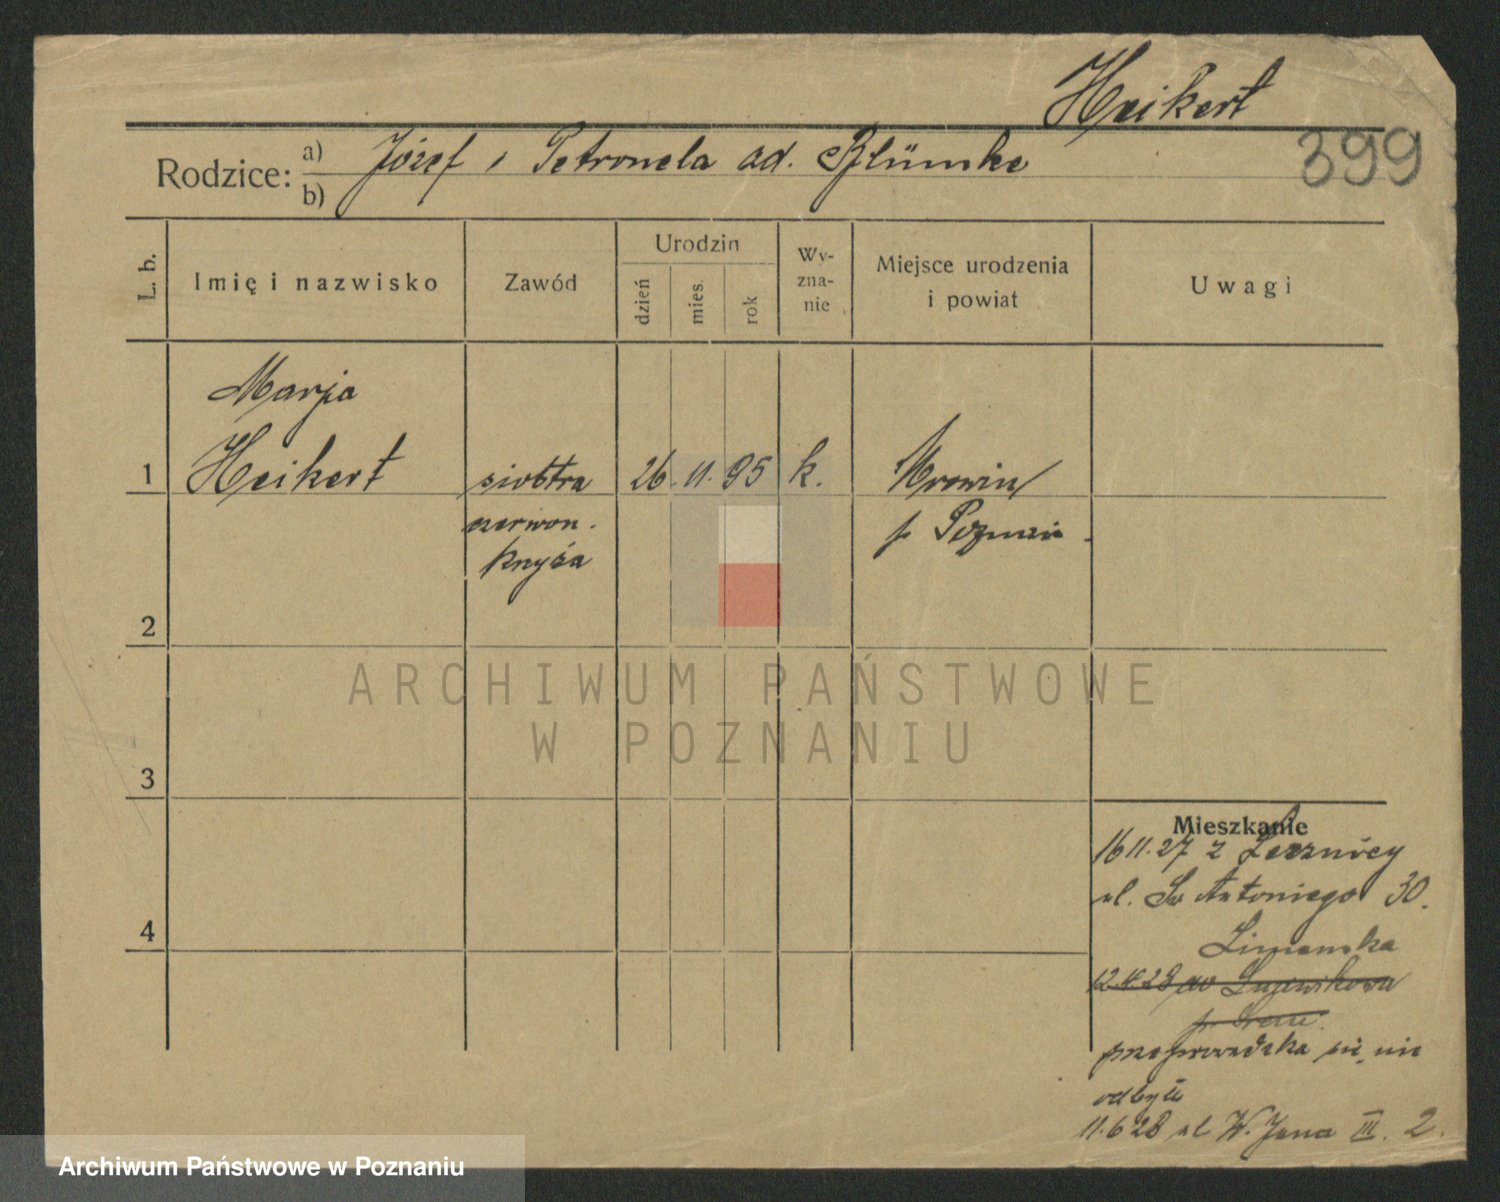 Heikert
399
Rodzice: a) Józef i Petronela od. Blümke
b)
L. b.
Imię i nazwisko
Zawód
Urodzin
dzień
mies.
rok
Wy-
zna-
nie
Miejsce urodzenia
i powiat
Uwagi
Marja
1 Heikert siostra 26. 11. 95 k. Mrowin
czerwon. p Poznań.
krzyża
2
ARCHIWUM PAŃSTWOWE
W POZNANIU
3
Mieszkanie
16 11.27 z Lecznicy
ul. Św Antoniego 30.
4
12. 28 do
p. Śrem.
przeprowadzka się nie
odbyła
11.6 28 ul W. Jana III. 2.
Archiwum Państwowe w Poznaniu